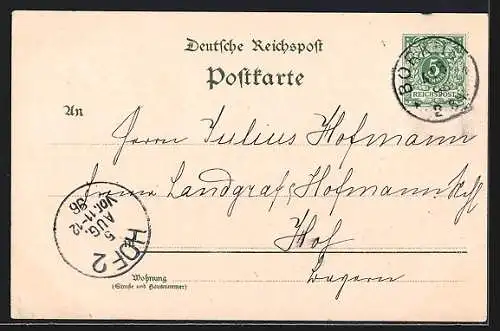 Deutsche Reichspost
Postkarte
5
REICHSPOST
An
Herrn Julius Hofmann
Firma Landgraf & Hofmann
Hof
Bayern
HOF 2
5
AUG.
Vor. 11-12
96
Wohnung
(Straße und Hausnummer)